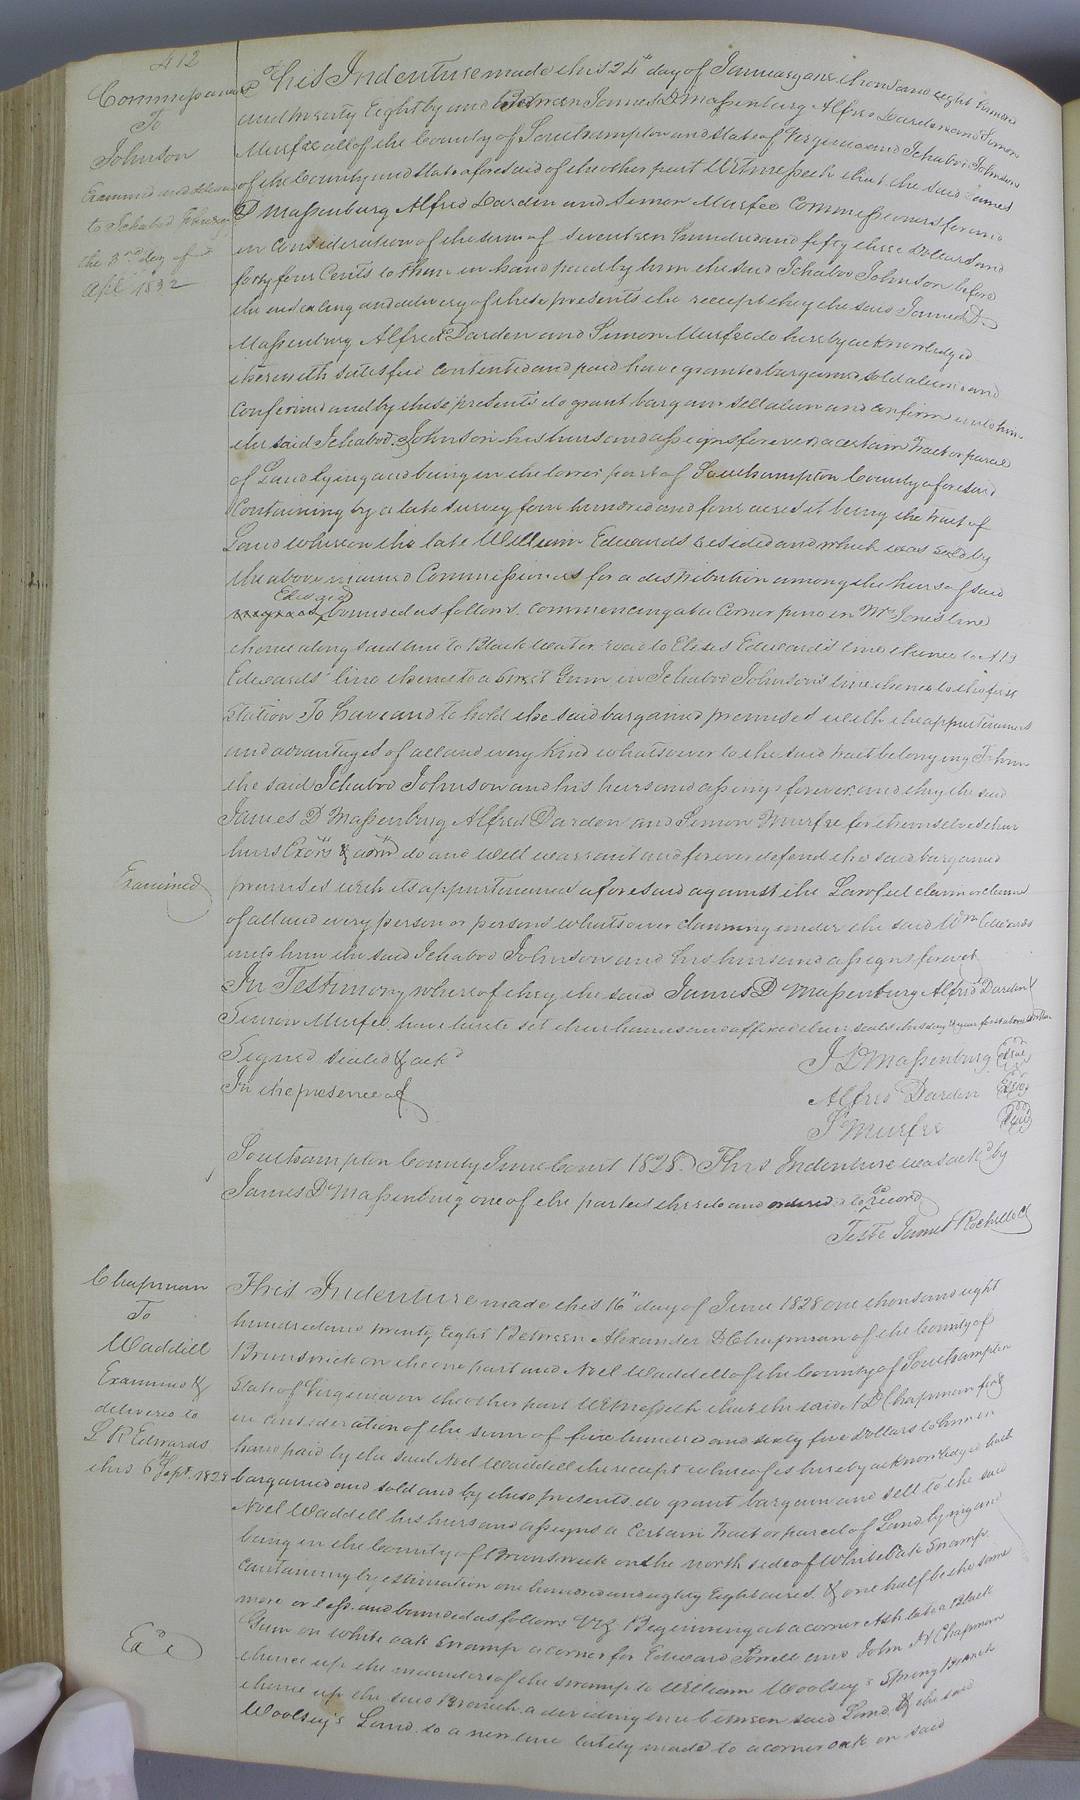 412
Commissioners
To
Johnson
Examined and delivered
to Ichabod Johnson
the 3rd day of
Apl 1832
This Indenture made this 24th day of January one thousand eight hundred
and twenty Eight by and between James D Massenburg Alfred Darden and Simon
Murfee all of the County of Southampton and State of Virginia and Ichabod Johnson
of the County and State aforesaid of the other part Witnesseth that the said James
D Massenburg Alfred Darden and Simon Murfee Commissioners for and
in Consideration of the sum of seventeen hundred and fifty three Dollars and
forty four Cents to them in hand paid by him the said Ichabod Johnson before
the ensealing and delivery of these presents the receipt they the said James D
Massenburg Alfred Darden and Simon Murfee do hereby acknowledged
therewith satisfied contented and paid have granted bargained sold alien and
confirmed and by these presents do grant bargain sell alien and confirm unto him
the said Ichabod Johnson his heirs and assigns forever a certain Tract or parcel
of Land lying and being in the lower part of Southampton County aforesaid
Containing by a late survey four hundred and four acres it being the tract of
Land whereon the late William Edwards resided and which was sold by
the above named Commissioners for a distribution among the heirs of said
Edwards bounded as follows. Commencing at a Corner pine in Mrs Jones line
thence along said line to Black water road to Elises Edward's line thence to
Edwards' line thence to a Sweet Gum in Ichabod Johnson's line thence to the first
Station To have and to hold the said bargained premises with the appurtenances
and advantages of all and every Kind whatsoever to the said tract belonging To him
the said Ichabod Johnson and his heirs and assigns forever and they the said
James D Massenburg Alfred Darden and Simon Murfee for themselves their
heirs Exors & admrs do and will warrant and forever defend the said bargained
Examined
premises with its appurtenances aforesaid against the Lawful claim or claims
of all and every person or persons whatsoever claiming under the said Wm Edwards
unto him the said Ichabod Johnson and his heirs and assigns forever
In Testimony whereof they the said James D Massenburg Alfred Darden &
Simon Murfee have hereto set their hands and affixed their seals this day & year first above written
Signed sealed & ackd
In the presence of
J D Massenburg Seal
Alfred Darden Seal
S Murfee Seal
Southampton County June Court 1828. This Indenture was ackd by
James D Massenburg one of the parties thereto and ordered to be record
Teste James Rochelle Cl
Chapman
To
Waddill
Examined &
delivered to
L R Edwards
this 6th Sept. 1828
This Indenture made this 16th day of June 1828 one thousand eight
hundred and twenty Eight Between Alexander D Chapman of the County of
Brunswick on the one part and Noel Waddell of the County of Southampton
State of Virginia on the other part Witnesseth that the said A D Chapman for &
in consideration of the sum of five hundred and sixty five Dollars to him in
hand paid by the said Noel Waddill the receipt whereof is hereby acknowledged hath
bargained and sold and by these presents do grant bargain and sell to the said
Noel Waddell his heirs and assigns a Certain Tract or parcel of Land lying and
being in the County of Brunswick on the north side of White Oak Swamp.
Containing by estimation one hundred and eighty Eight acres & one half be the same
more or less. and bounded as follows Viz Beginning at a corner Ash late a Black
Gum on white oak swamp a corner for Edward Powell and John N Chapman
thence up the meanders of the swamp to William Woolsey's Spring Branch
thence up the said Branch a dividing line between said Land & the said
Woolsey's Land. to a new line lately made to a corner oak on said
Exd